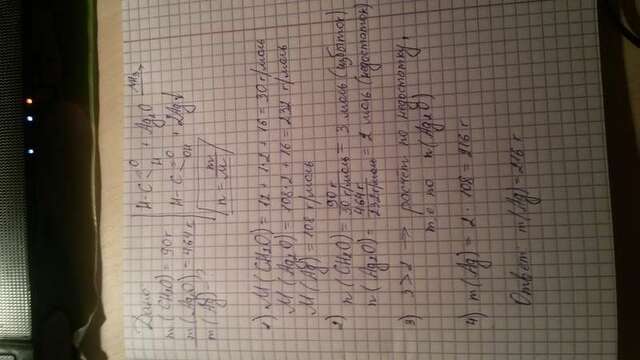 Дано:
m(CH₂O) = 90 г
m(Ag₂O) = 464 г
m(Ag)
H-C
O
H
+ Ag₂O
NH₃
H-C
O
OH
+ 2Ag↓
n = m/M
1) M(CH₂O) = 12 + 1·2 + 16 = 30 г/моль
M(Ag₂O) = 108·2 + 16 = 232 г/моль
M(Ag) = 108 г/моль
2) n(CH₂O) = 90 г / 30 г/моль = 3 моль (избыток)
n(Ag₂O) = 464 г / 232 г/моль = 2 моль (недостаток)
3) 3>2 ⇒ расчет по недостатку,
т.е по n(Ag₂O)
4) m(Ag) = 2 · 108 = 216 г
Ответ: m(Ag) = 216 г